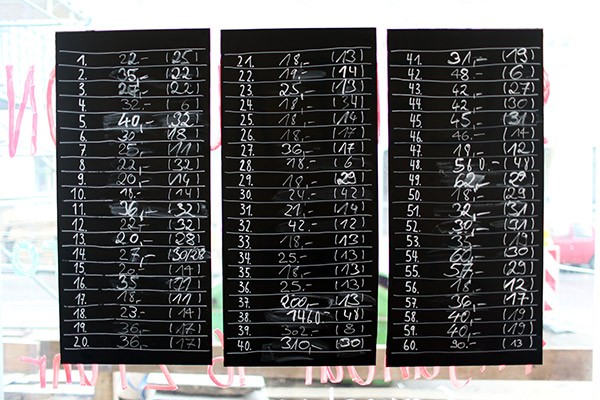 1. 22.- (25)
2. 35.- (22)
3. 27,- (22)
4. 32.- (6
5. 40.- (32
6. 32.- 18
7. 25.- (11)
8. 22,- (32)
9. 20.- (14
10. 18.- (14)
11. 36,- (32)
12. 22.- (32)
13. 20.- (28)
14. 27,-
15. 20.- (17)
16. 35.- (11
17. 18.- (11)
18. 23.- (14
19. 36,- (17)
20. 36,- (17)
21. 18,- (13)
22. 19.- (14)
23. 25.- (13)
24. 18.- (34)
25. 18,- (14)
26. 18.- (17)
27. 36,- (17)
28. 18.- (6)
29. 18,- (29
30. 24.- (42)
31. 21.- (14)
32. 42.- (12)
33. 18.- (13)
34. 25.- (13)
35. 18.- (13
36. 25.- (13)
37. 200,- (13
38. 1460.- (48)
39. 302.- (8)
40. 310,- (30)
41. 31,- (19)
42. 48.- (6)
43. 42,- (27)
44. 42,- (30)
45. 45.- (31)
46. 46.- (14)
47. 18,- (12)
48. 560.- (48)
49. 62,- (29
50. 18.- (29)
51. 32.- (31)
52. 30.- (31)
53. 33.- (19)
54. 60.- (30)
55. 57.- (29)
56. 18.- 12
57. 36,- (17)
58. 40,- (19
59. 40,- (19)
60. 30.- (13)